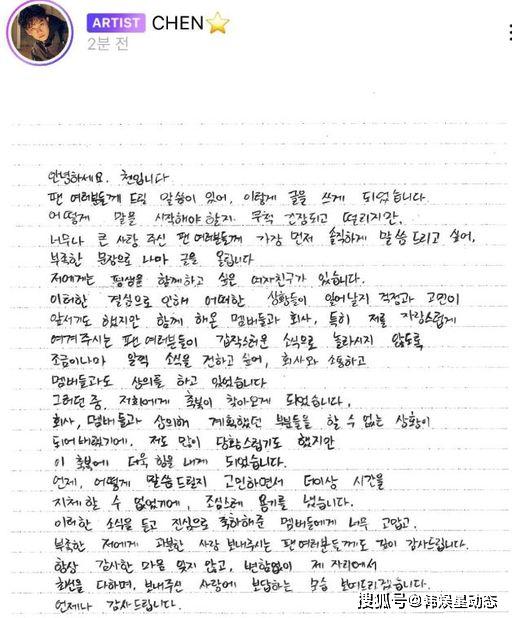 ARTIST CHEN⭐
2분 전
안녕하세요. 첸입니다
팬 여러분들께 드릴 말씀이 있어, 이렇게 글을 쓰게 되었습니다.
어떻게 말을 시작해야 할지 무척 긴장되고 떨리지만,
너무나 큰 사랑 주신 팬 여러분들께 가장 먼저 솔직하게 말씀 드리고 싶어,
부족한 문장으로 나마 글을 올립니다
저에게는 평생을 함께하고 싶은 여자친구가 있습니다.
이러한 결심으로 인해 어떠한 상황들이 일어날지 걱정과 고민이
앞서기도 했지만 함께 해온 멤버들과 회사, 특히 저를 자랑스럽게
여겨주시는 팬 여러분들이 갑작스러운 소식으로 놀라시지 않도록
조금이나마 일찍 소식을 전하고 싶어, 회사와 소통하고
멤버들과도 상의를 하고 있었습니다
그러던 중, 저희에게 축복이 찾아오게 되었습니다.
회사, 멤버들과 상의해 계획했던 부분들을 할 수 없는 상황이
되어버렸기에, 저도 많이 당황스럽기도 했지만
이 축복에 더욱 힘을 내게 되었습니다.
언제, 어떻게 말씀드릴지 고민하면서 더이상 시간을
지체할 수 없었기에, 조심스레 용기를 냈습니다.
이러한 소식을 듣고 진심으로 축하해준 멤버들에게 너무 고맙고,
부족한 저에게 과분한 사랑 보내주시는 팬 여러분들께도 깊이 감사드립니다.
항상 감사한 마음 잊지 않고, 변함없이 제 자리에서
최선을 다하며, 보내주신 사랑에 보답하는 모습 보여드리겠습니다.
언제나 감사드립니다.
搜狐号@韩娱星动态